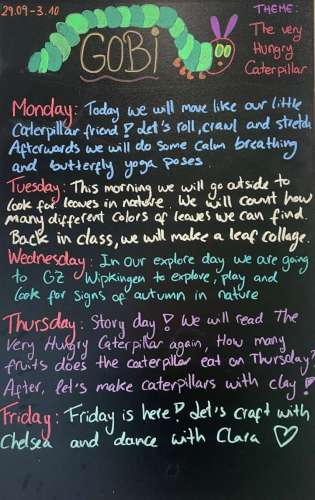 29.09-3.10
THEME:
GOBi
The very
Hungry
Caterpillar
Monday: Today we will move like our little
caterpillar friend! Let's roll, crawl and stretch
Afterwards we will do some calm breathing
and butterfly yoga poses.
Tuesday: This morning we will go outside to
look for leaves in nature. We will count how
many different colors of leaves we can find.
Back in class, we will make a leaf collage.
Wednesday: In our explore day we are going
to GZ Wipkingen to explore, play and
look for signs of autumn in nature
Thursday: Story day! We will read The
Very Hungry Caterpillar again, How many
fruits does the caterpillar eat on Thursday?
After, let's make caterpillars with clay!
Friday: Friday is here! Let's craft with
Chelsea and dance with Clara